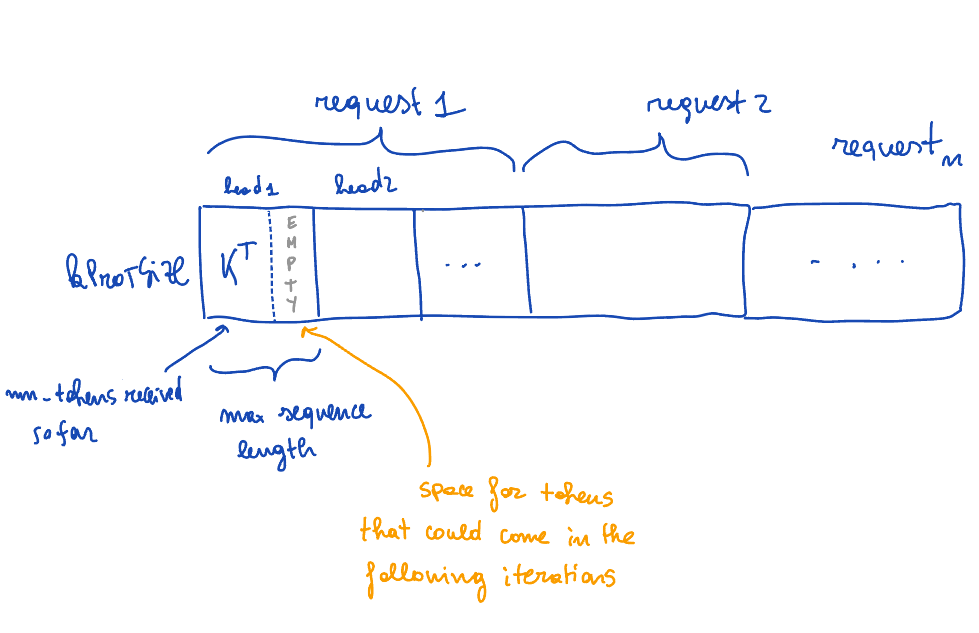 request 1
request 2
request n
head1
head2
kProjSize
K^T
EMPTY
...
- . . .
num_tokens received
so far
max sequence
length
space for tokens
that could come in the
following iterations